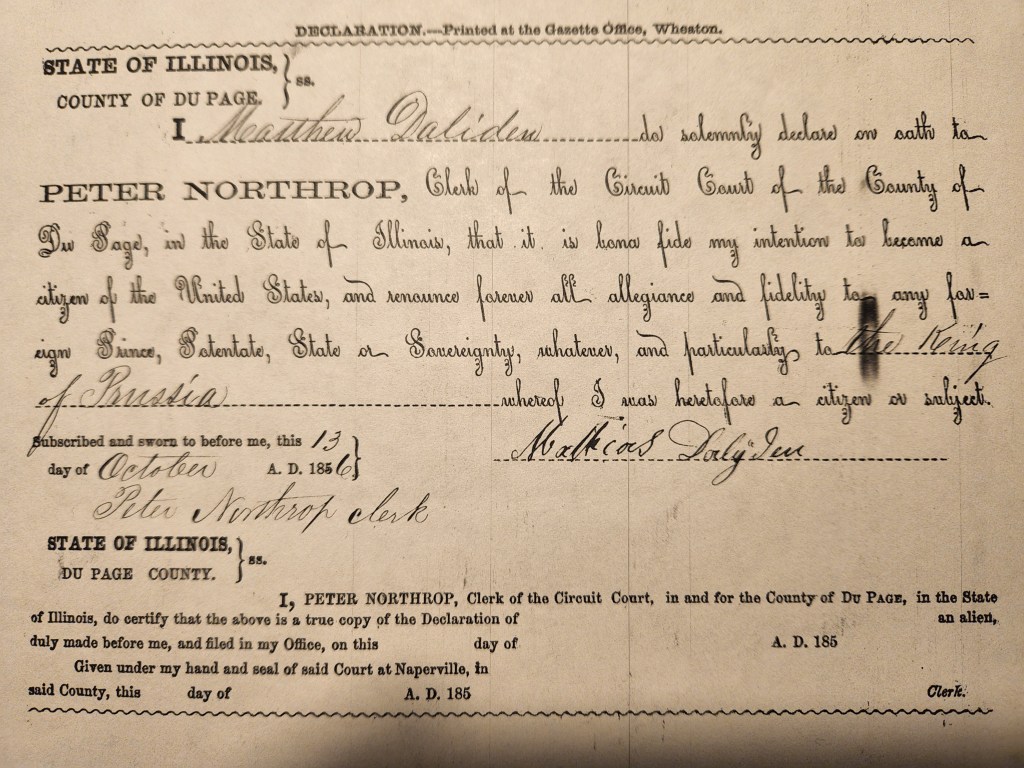 DECLARATION.—Printed at the Gazette Office, Wheaton.
STATE OF ILLINOIS, } ss.
COUNTY OF DU PAGE. }
I Matthew Daliden do solemnly declare on oath to
PETER NORTHROP, Clerk of the Circuit Court of the County of
Du Page, in the State of Illinois, that it is bona fide my intention to become a
citizen of the United States, and renounce forever all allegiance and fidelity to any for=
eign Prince, Potentate, State or Sovereignty, whatever, and particularly to the King
of Prussia whereof I was heretofore a citizen or subject.
Subscribed and sworn to before me, this 13 }
day of October A. D. 1856 }
Mathias Dalyden
Peter Northrop clerk
STATE OF ILLINOIS, } ss.
DU PAGE COUNTY. }
I, PETER NORTHROP, Clerk of the Circuit Court, in and for the County of DU PAGE, in the State
of Illinois, do certify that the above is a true copy of the Declaration of an alien,
duly made before me, and filed in my Office, on this day of A. D. 185
Given under my hand and seal of said Court at Naperville, in
said County, this day of A. D. 185 Clerk.